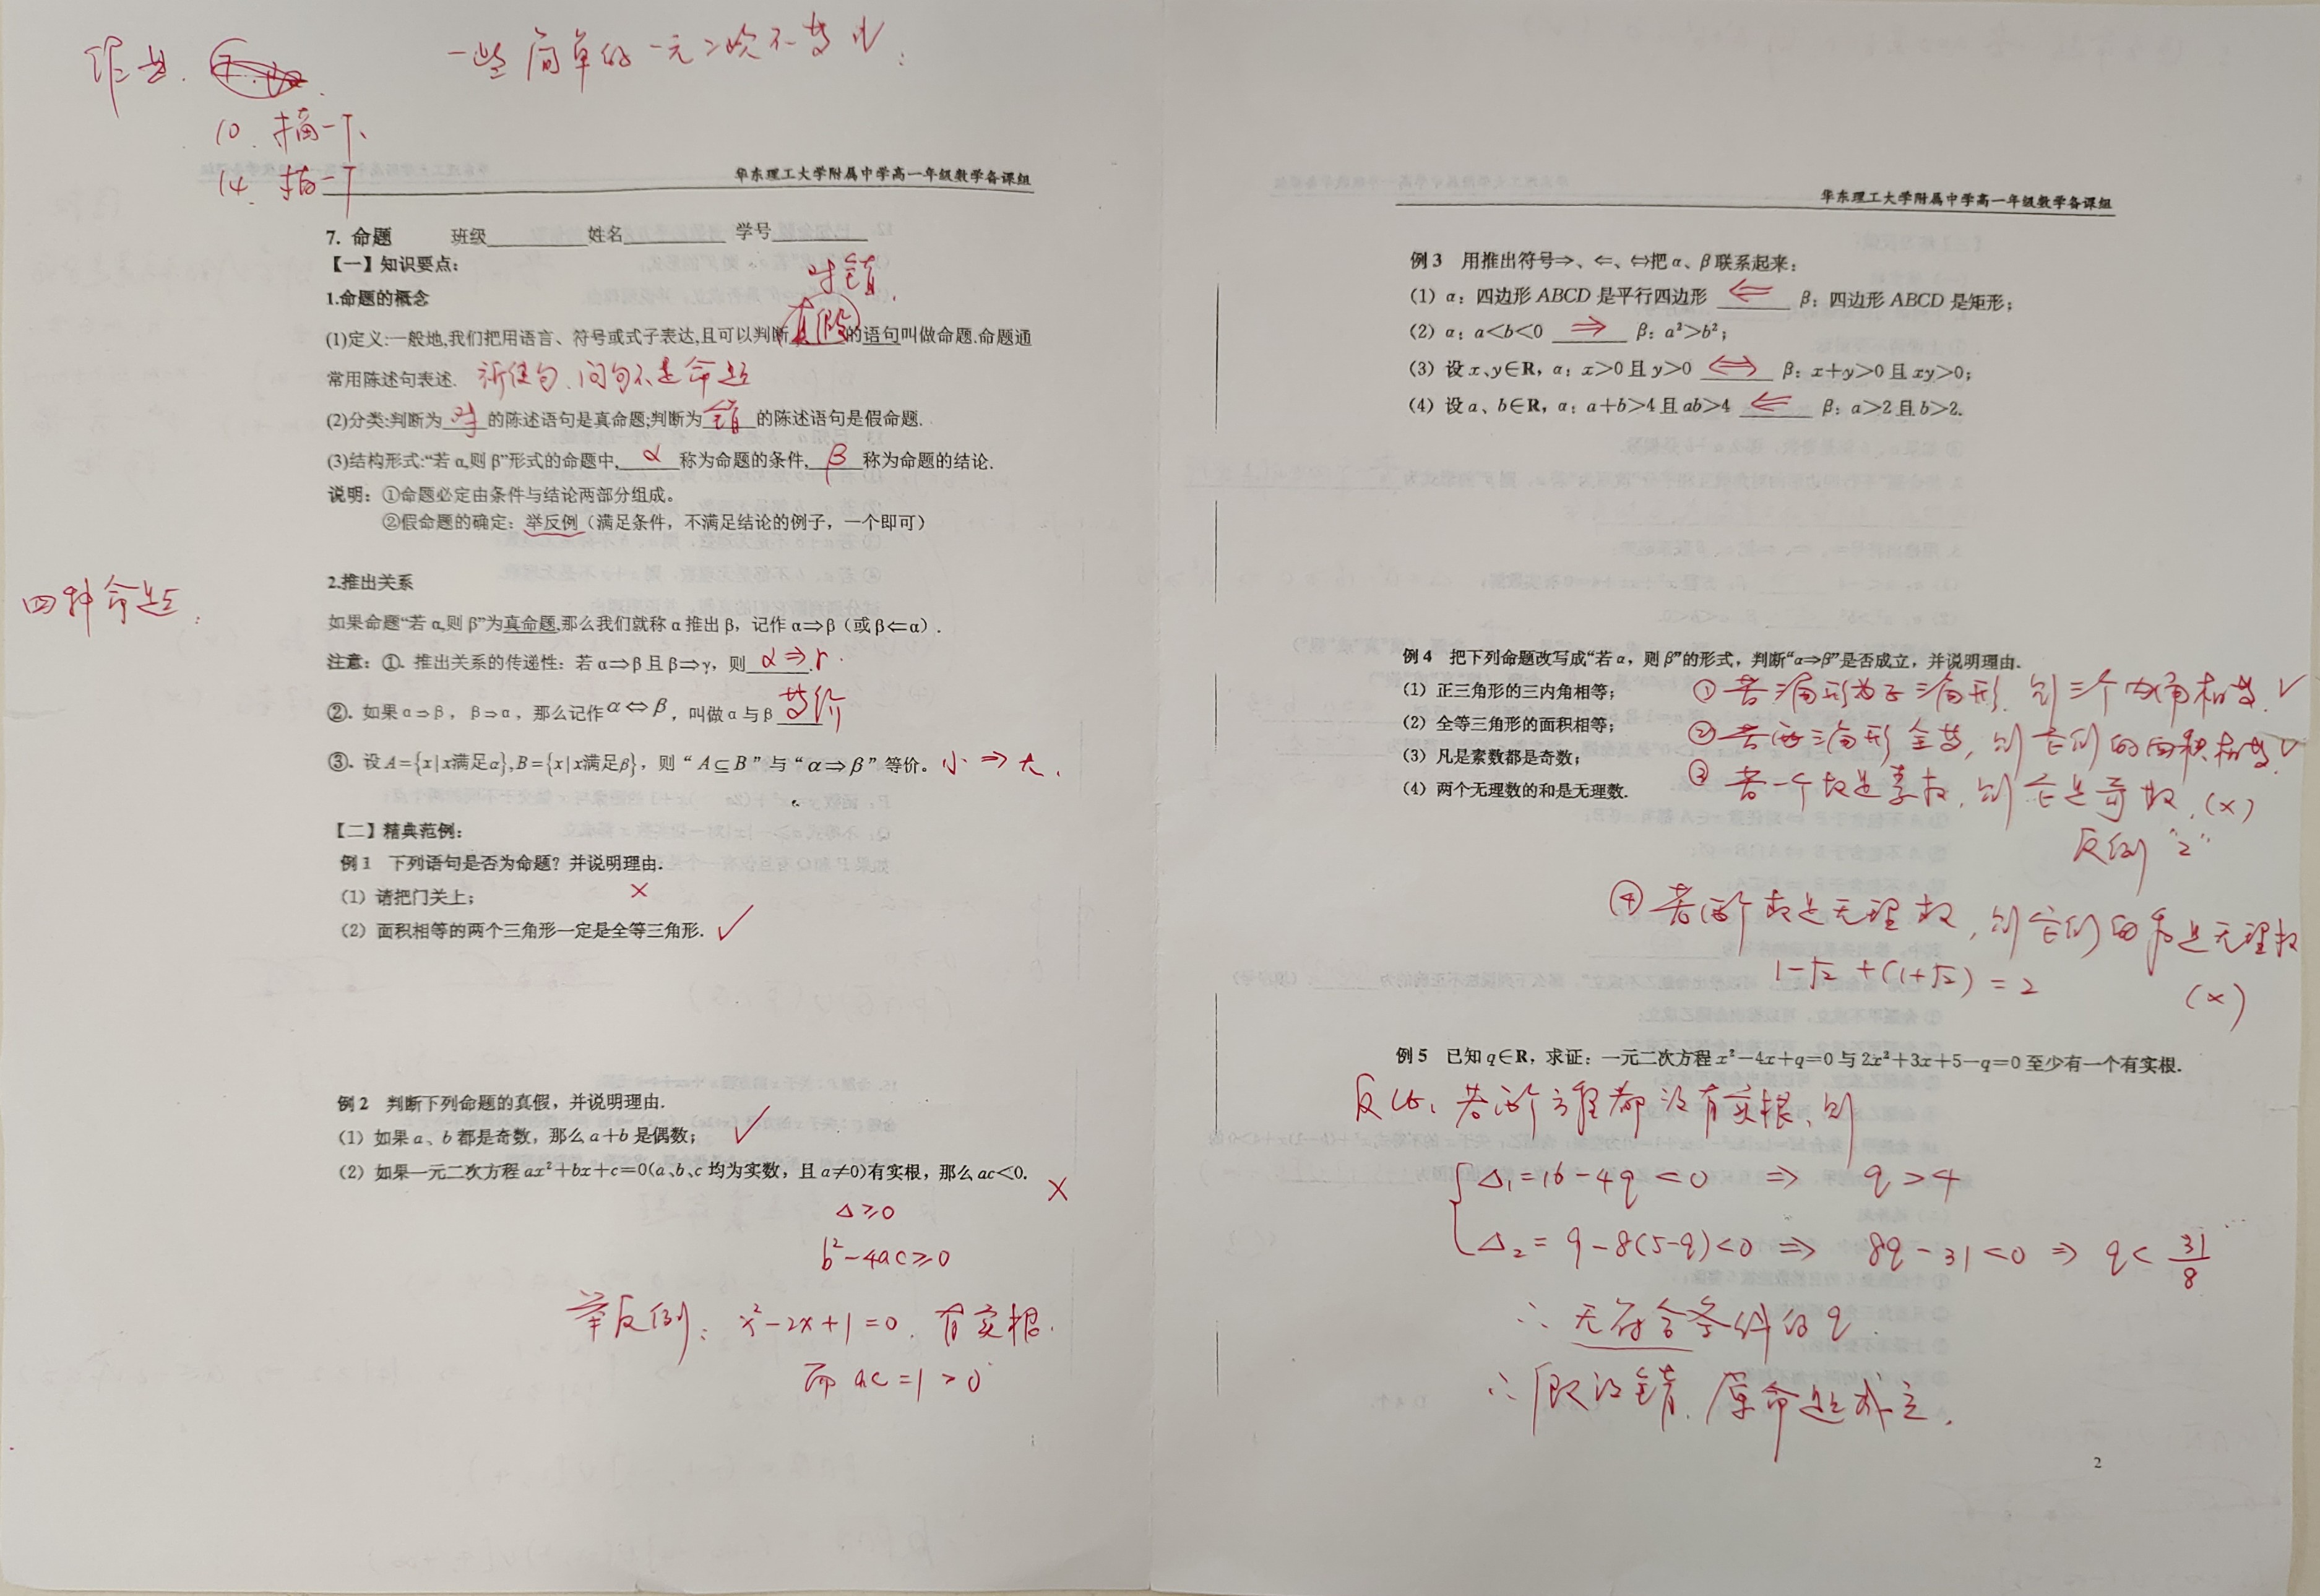 作业.
一些简单的一元二次不等式:
10. 摘一下、
14. 摘一下
华东理工大学附属中学高一年级数学备课组
7. 命题 班级 姓名 学号
【一】知识要点:
对错.
1.命题的概念
(1)定义:一般地,我们把用语言、符号或式子表达,且可以判断真(假)的语句叫做命题.命题通
常用陈述句表述. 祈使句、问句不是命题
(2)分类:判断为对的陈述语句是真命题;判断为错的陈述语句是假命题.
(3)结构形式:“若α,则β”形式的命题中,α称为命题的条件,β称为命题的结论.
说明:①命题必定由条件与结论两部分组成。
②假命题的确定:举反例(满足条件,不满足结论的例子,一个即可)
2.推出关系
四种命题.
如果命题“若α,则β”为真命题,那么我们就称α推出β,记作α⇒β(或β⇐α).
注意:①. 推出关系的传递性:若α⇒β且β⇒γ,则α⇒r.
②. 如果α⇒β,β⇒α,那么记作α⇔β,叫做α与β等价
③. 设A={x|x满足α},B={x|x满足β},则“A⊆B”与“α⇒β”等价。小⇒大.
【二】精典范例:
例1 下列语句是否为命题?并说明理由.
(1)请把门关上; ×
(2)面积相等的两个三角形一定是全等三角形. ✓
例2 判断下列命题的真假,并说明理由.
(1)如果a、b都是奇数,那么a+b是偶数; ✓
(2)如果一元二次方程ax²+bx+c=0(a、b、c均为实数,且a≠0)有实根,那么ac<0. ×
Δ≥0
b²-4ac≥0
举反例: x²-2x+1=0. 有实根.
而 ac=1>0
华东理工大学附属中学高一年级数学备课组
例3 用推出符号⇒、⇐、⇔把α、β联系起来:
(1)α:四边形ABCD是平行四边形 ⇐ β:四边形ABCD是矩形;
(2)α:a<b<0 ⇒ β:a²>b²;
(3)设x、y∈R,α:x>0且y>0 ⇔ β:x+y>0且xy>0;
(4)设a、b∈R,α:a+b>4且ab>4 ⇐ β:a>2且b>2.
例4 把下列命题改写成“若α,则β”的形式,判断“α⇒β”是否成立,并说明理由.
(1)正三角形的三内角相等; ①若三角形为正三角形, 则三个内角相等. ✓
(2)全等三角形的面积相等; ②若两三角形全等, 则它们的面积相等 ✓
(3)凡是素数都是奇数; ③若一个数是素数, 则它是奇数. (×)
(4)两个无理数的和是无理数.
反例 “2”
④若两个数是无理数, 则它们的和是无理数
1-√2+(1+√2)=2 (×)
例5 已知q∈R,求证:一元二次方程x²-4x+q=0与2x²+3x+5-q=0至少有一个有实根.
反证、若两个方程都没有实根, 则
Δ₁=16-4q<0 ⇒ q>4
Δ₂=9-8(5-q)<0 ⇒ 8q-31<0 ⇒ q<31/8
∴ 无符合条件的q
∴ 假设错. 原命题成立.
2